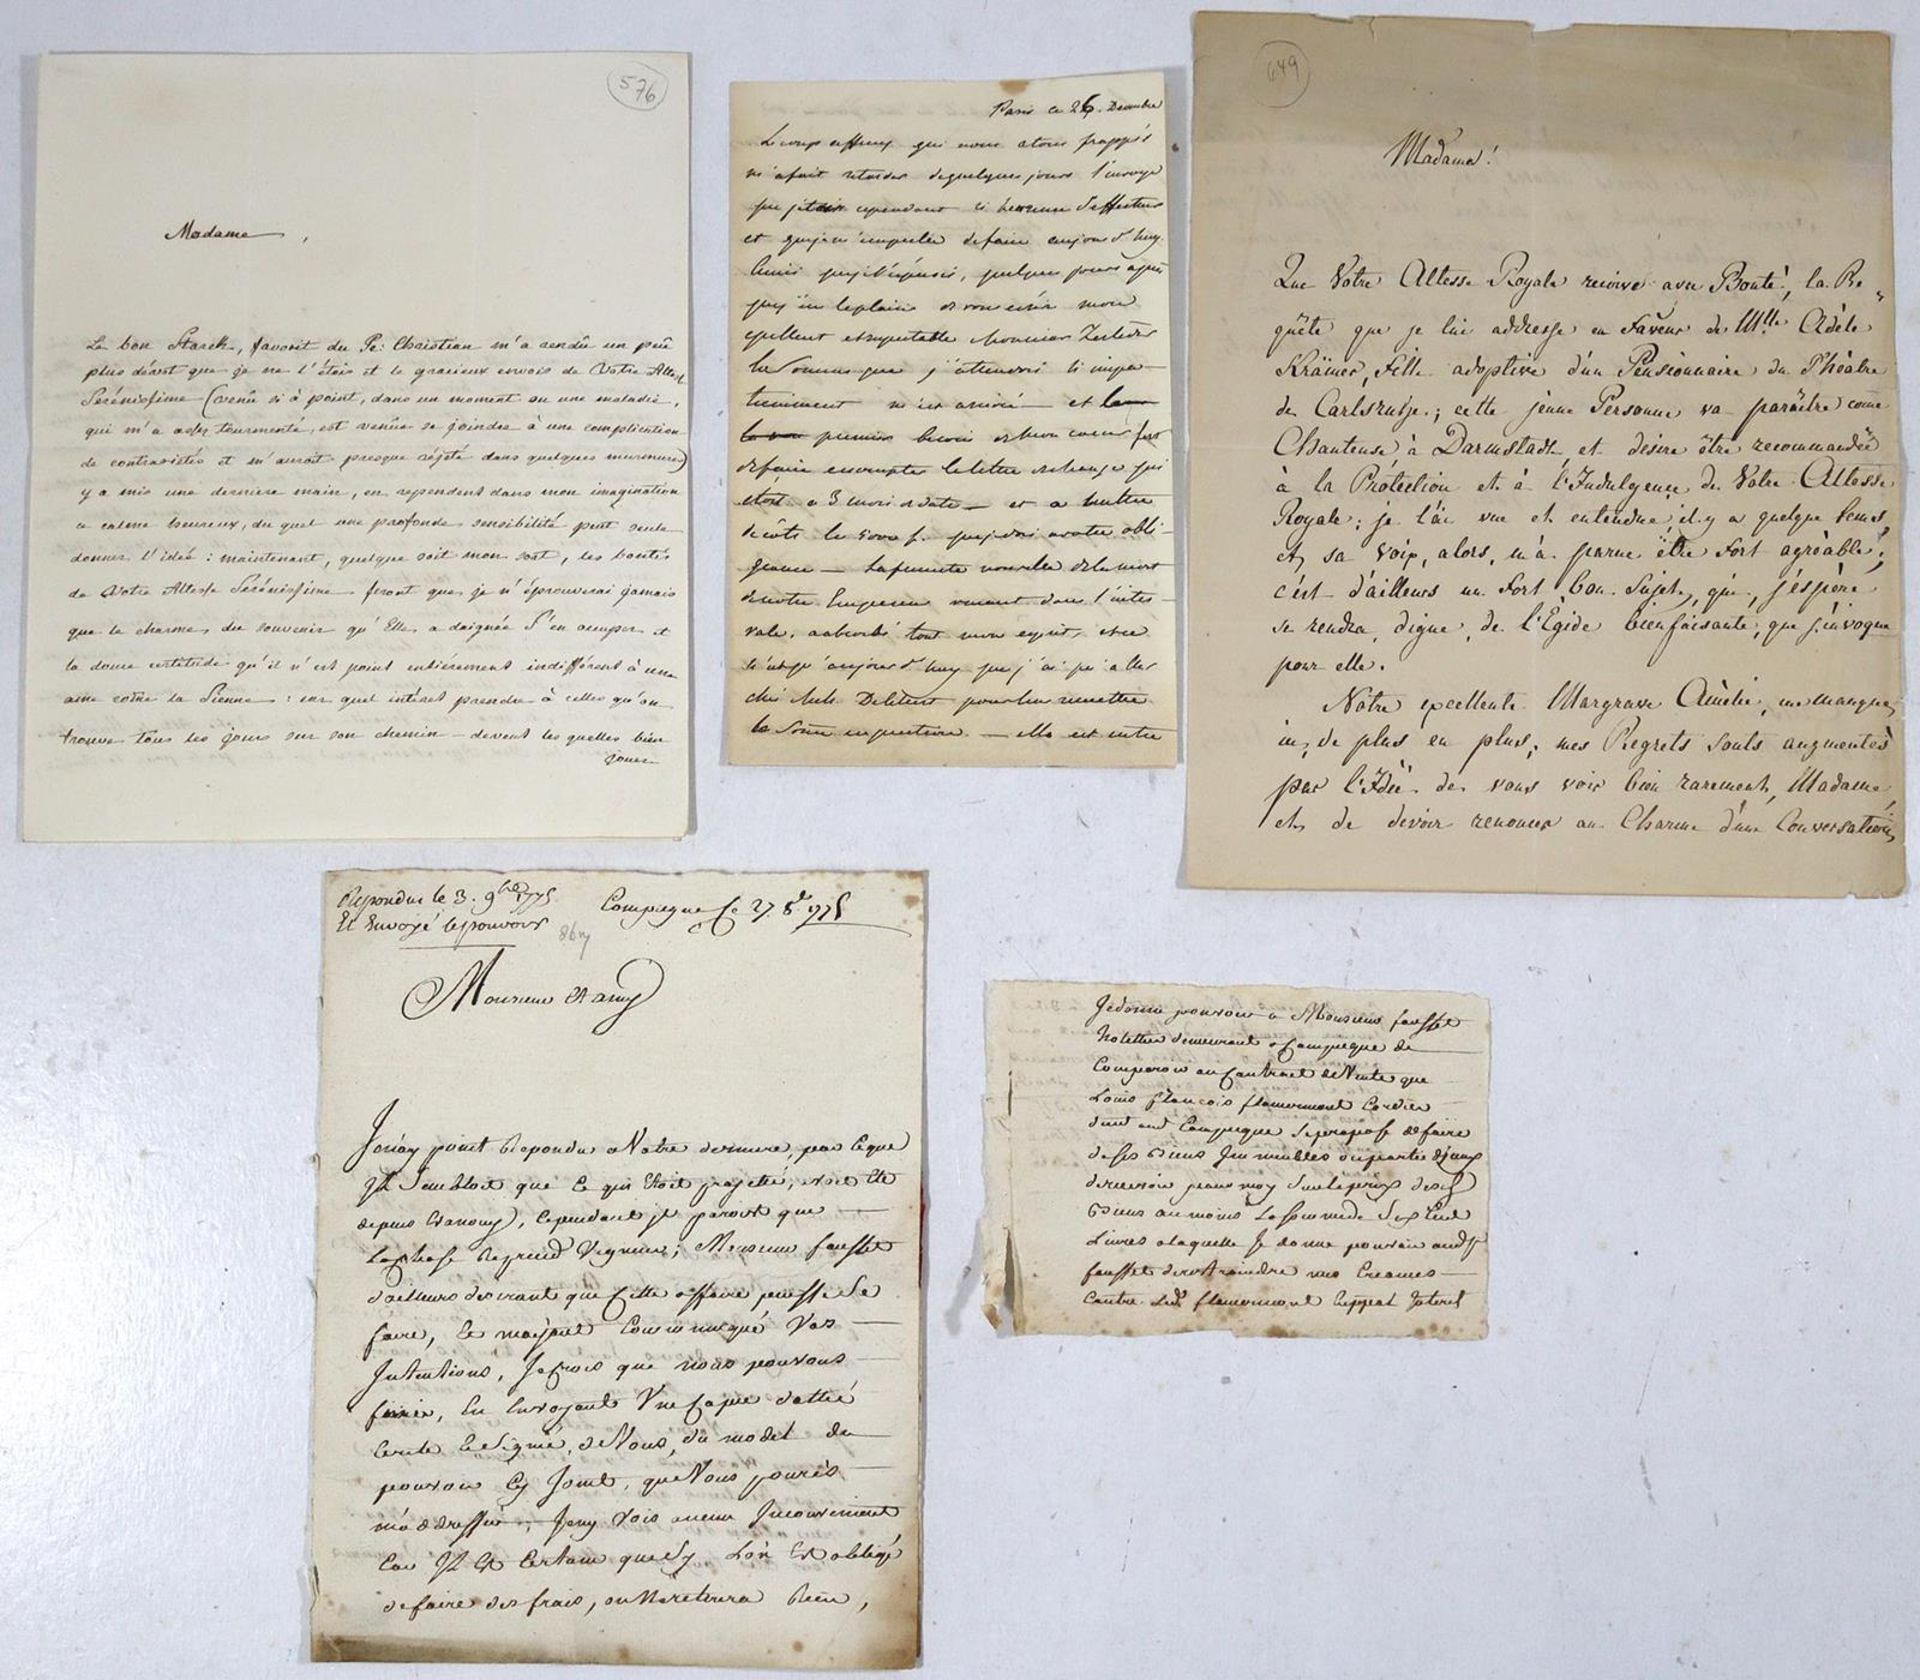 576
Madame,
Le bon Starck, favorit du Pe: Christian m'a rendû un peû
plus dévot que je ne l'étois et le gracieux envois de Votre Altesse
Sérénissime (venû si à point, dans un moment ou une maladie,
qui m'a assez tourmenté, est venûe se joindre à une complication
de contrariétés et m'auroit presque réjeté dans quelques murmures)
y a mis une derniere main, en rependent dans mon imagination
ce calme heureux, du quel une profonde sensibilité peut seule
donner l'idée: maintenant, quelque soit mon sort, les bontés
de Votre Altesse Sérénissime feront que je n'éprouverai jamais
que le charme, du souvenir qu'Elle a daignée s'en occuper et
la douce certitude qu'il n'est point entiérement indifférent à une
ame come la Sienne: car quel intéret prendre à celles qu'on
trouve tous les jours sur son chemin - devent les quelles bien
Paris ce 26. Decembre
Le coup affreux qui nous a tous frappés
m'a fait retarder de quelques jours l'envoye
que j'etois cependant si heureuse d'effectuer
et que je m'empresse de faire aujourd'huy.
quelques jours après
que j'eus le plaisir de vous écrire mon
excellent et respectable Monsieur
la somme que j'attendois si impa-
tiemment m'est arrivée et
premier besoin de mon coeur fut
de faire escompter la lettre de change qui
etoit a 3 mois de date - et a mettre
de côté les 5000 f. que je dois a votre obli-
geance - La funeste nouvelle de la mort
de notre Empereur venant dans l'inter-
vale, a absorbé tout mon esprit, et ce
n'est qu'aujourd'huy que j'ai pu aller
chés Mrs Delessert pour leur remettre
la somme en question - elle est entre
649
Madame!
Que Votre Altesse Royale reçoive avec Bonté, la Re-
quête que je lui addresse en Faveur de Mlle Adèle
Krämer, Fille adoptive d'un Pensionnaire du Théâtre
de Carlsruhe; cette jeune Personne va paraître come
Chanteuse à Darmstadt et desire être recommandée
à la Protection et à l'Indulgence de Votre Altesse
Royale; je l'ai vue et entendue, il y a quelque tems,
et sa voix, alors, m'a parue être fort agréable;
c'est d'ailleurs un fort bon Sujet, qui, j'espère
se rendra digne de l'Egide bienfaisante, que j'invoque
pour elle.
Notre excellente Margrave Amélie, me manque,
ici, de plus en plus; mes Regrets sont augmentés
par l'Idée de vous voir bien rarement, Madame,
et de devoir renoncer au Charme d'une Conversation
Repondu le 3. 9bre 1775.
Et Envoyé le pouvoir
Compiegne Ce 27. 8e. 1775
Monsieur Et amy
Je n'ay point Repondu a Votre derniere, par Ce que
Il Sembloit que Ce qui Etoit projeté, avoit Eté
depuis Evanouy, Cependant il paroit que
La chose Reprend Vigueur; Monsieur fausset
d'ailleurs desirant que Cette affaire puisse Se
faire, Et m'ayant Communiqué Vos
Intentions, Je Crois que nous pouvons
finir, En Envoyant Une Copie d'attié
Ecrite Et Signée, de Vous, du model du
pouvoir Cy Joint, que Vous pourés
m'addresser, Je n'y Vois aucun Inconvenient
Car Il Est Certain que Sy L'on Est obligé
de faire des frais, on Ne retirera Rien,
Je donne pouvoir a Monsieur fausset
demeurant a Compiegne de
Comparoir au Contract de Vente que
Louis François flamermont Cordier
Compiegne Se propose de faire
de Ses Biens Immeubles ou partie d'iceux
de recevoir pour moy Sur le prix desd
Biens au moins La Somme de Sept Cent
Livres a laquelle Je donne pouvoir aud Sr
fausset de restraindre mes Creances
Contre Led. flamermont